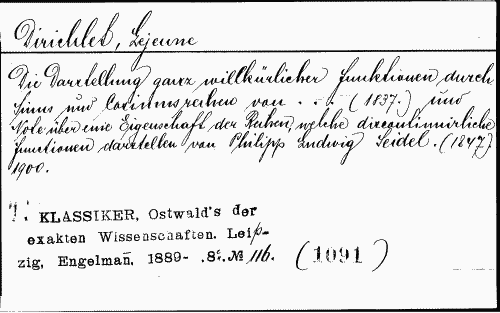 Dirichlet, Lejeune
Die Darstellung ganz willkürlicher Funktionen durch
Sinus und Cosinusreihen von ... (1837.) und
Note über eine Eigenschaft der Reihen, welche discontinuirliche
Funktionen darstellen von Philipp Ludwig Seidel. (1847)
1900.
KLASSIKER, Ostwald's der
exakten Wissenschaften. Leip-
zig, Engelman̄, 1889- .8º. № 116. (1091)